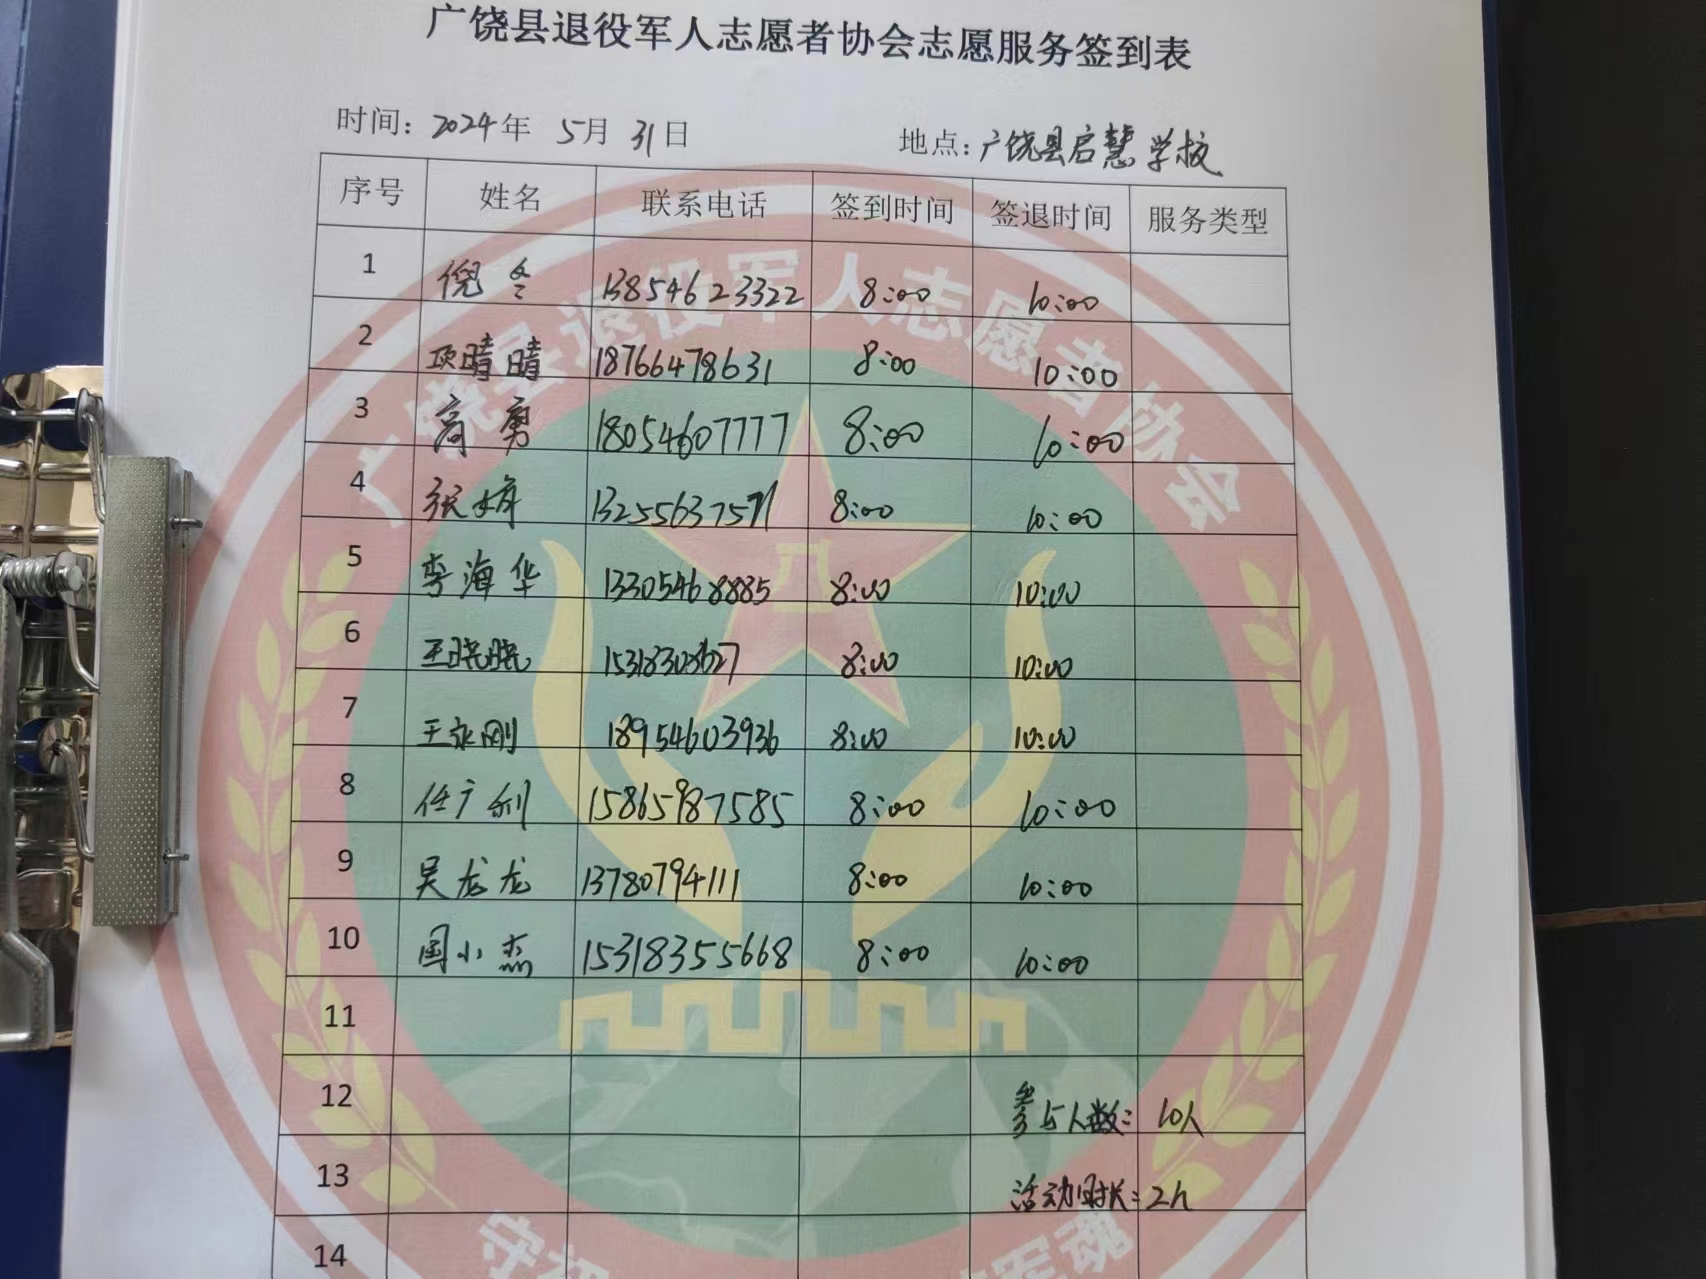 广饶县退役军人志愿者协会志愿服务签到表
时间: 2024年 5月 31日 地点: 广饶县启慧学校
序号 姓名 联系电话 签到时间 签退时间 服务类型
1 倪冬 13854623322 8:00 10:00
2 项晴晴 18766478631 8:00 10:00
3 高勇 18054607777 8:00 10:00
4 张婷 13255637571 8:00 10:00
5 李海华 13305468885 8:00 10:00
6 王晓晓 8:00 10:00
7 王永刚 18954603936 8:00 10:00
8 任广利 15865987585 8:00 10:00
9 吴龙龙 13780794111 8:00 10:00
10 国小杰 15318355668 8:00 10:00
11
12 参与人数: 10人
13 活动时长: 2h
14
广饶县退役军人志愿者协会
守初 军魂